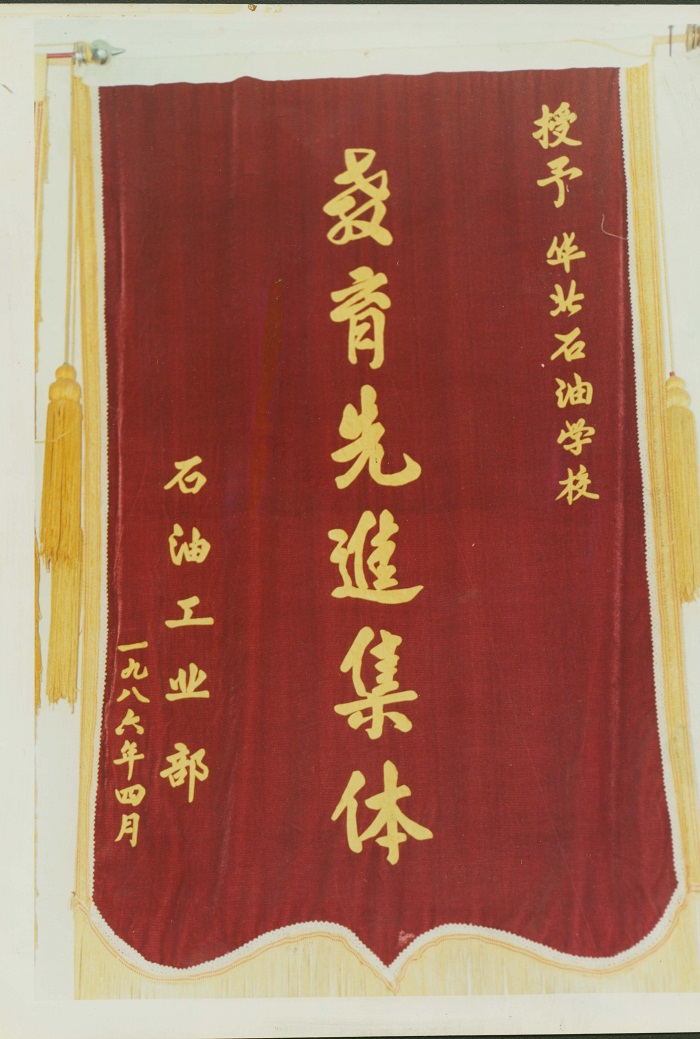 授予 华北石油学校
教育先進集体
石油工业部
一九八六年四月